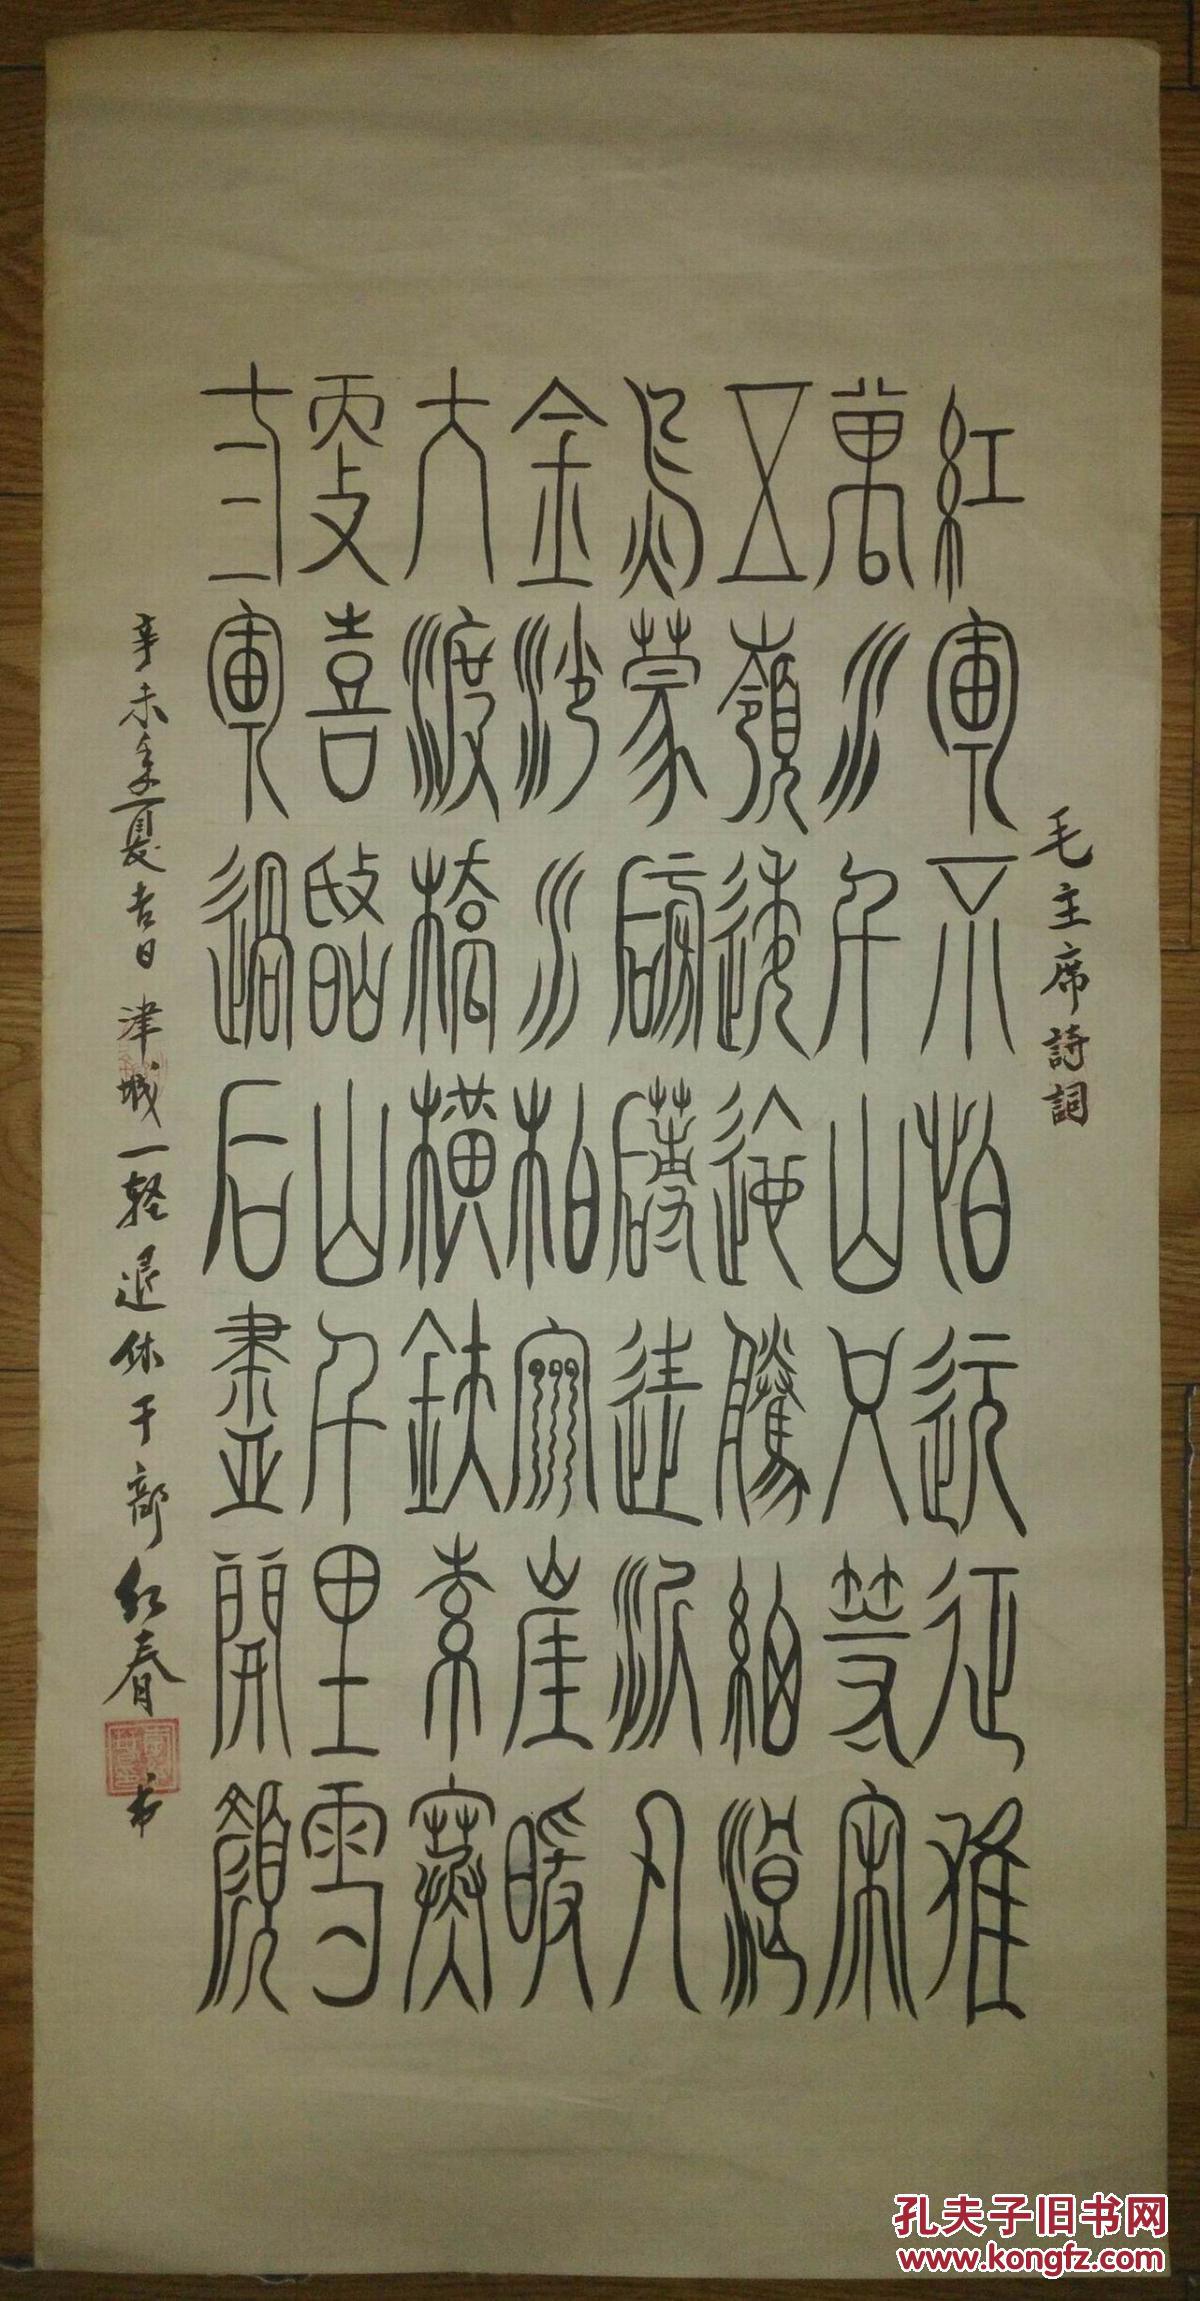 毛主席詩詞
紅軍不怕远征难
萬水千山只等閑
五嶺逶迤騰細浪
烏蒙磅礴走泥丸
金沙水拍雲崖暖
大渡橋橫鉄索寒
更喜岷山千里雪
三軍過后盡開顏
辛未季夏吉日 津城一轻退休干部 红春 书
孔夫子旧书网
www.kongfz.com